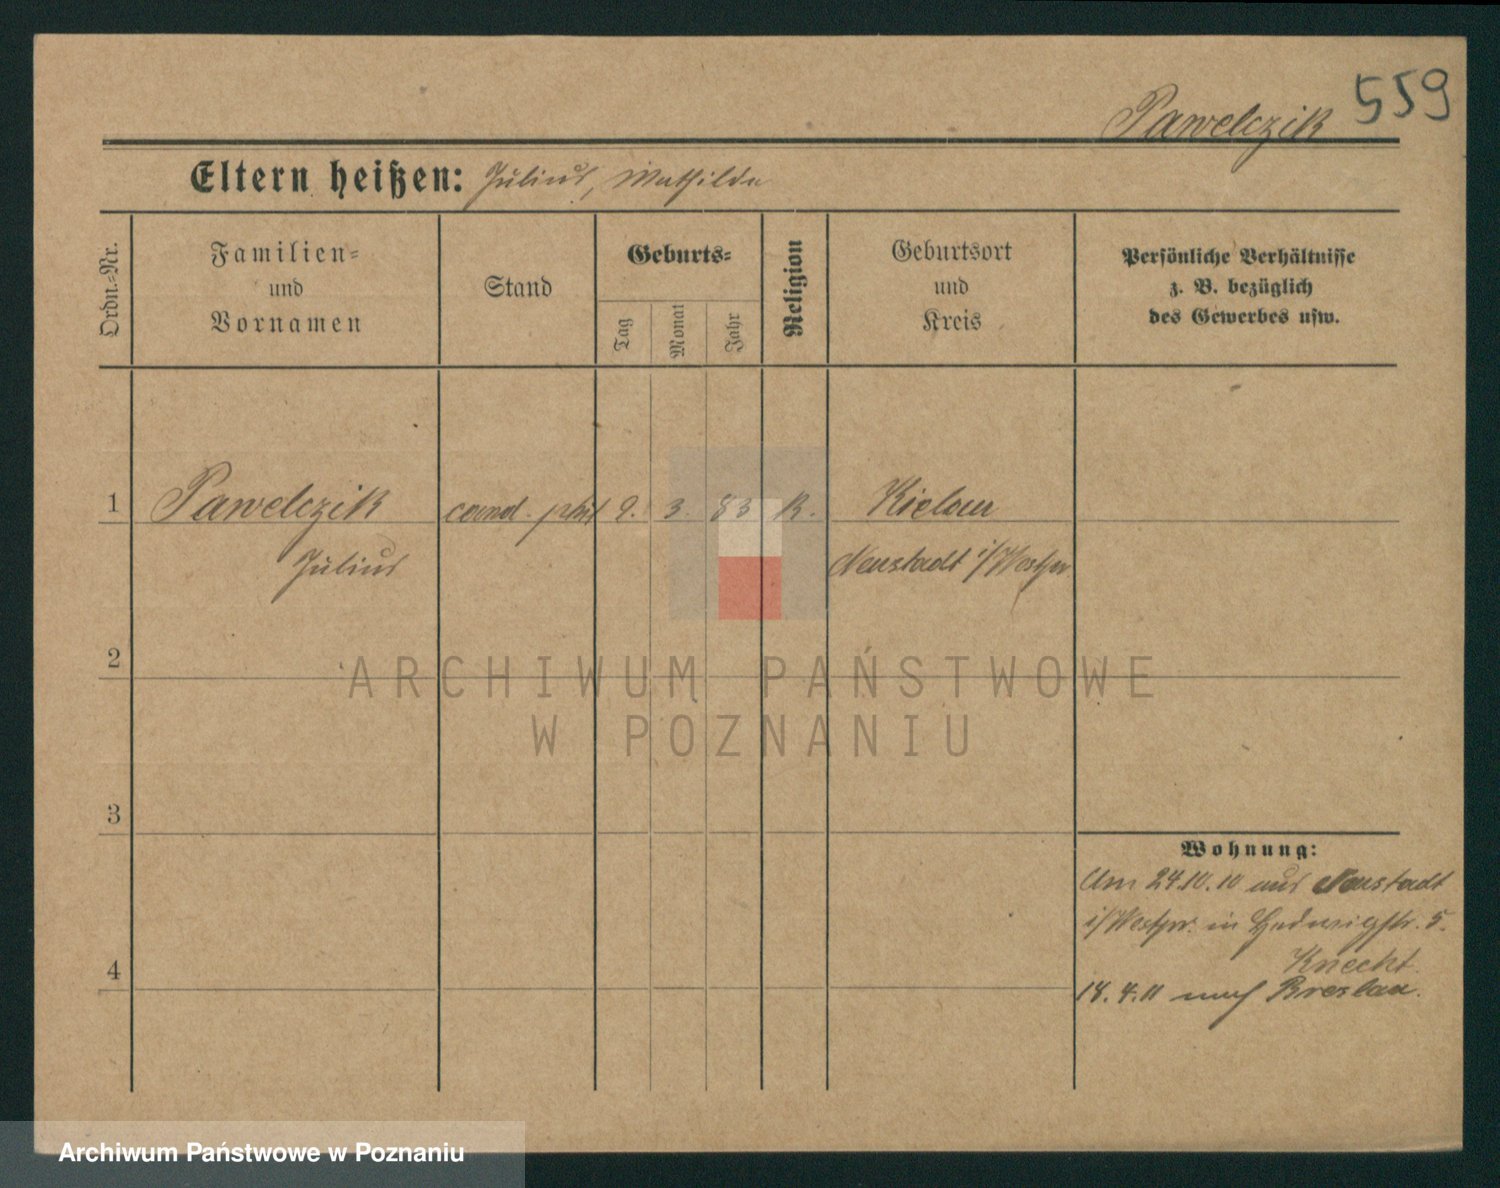 559
Pawelczik
Eltern heißen: Julius, Mathilde
Ordn.-Nr.
Familien-
und
Vornamen
Stand
Geburts-
Tag
Monat
Jahr
Religion
Geburtsort
und
Kreis
Persönliche Verhältnisse
z. B. bezüglich
des Gewerbes usw.
1 Pawelczik cand. phil 9. 3. 83 K. Kielau
Julius Neustadt i/Westpr.
2
ARCHIWUM PAŃSTWOWE
W POZNANIU
3
Wohnung:
Am 24.10.10 aus Neustadt
i/Westpr. in Hedwigstr. 5.
Knecht.
4
18.4.11 nach Breslau.
Archiwum Państwowe w Poznaniu